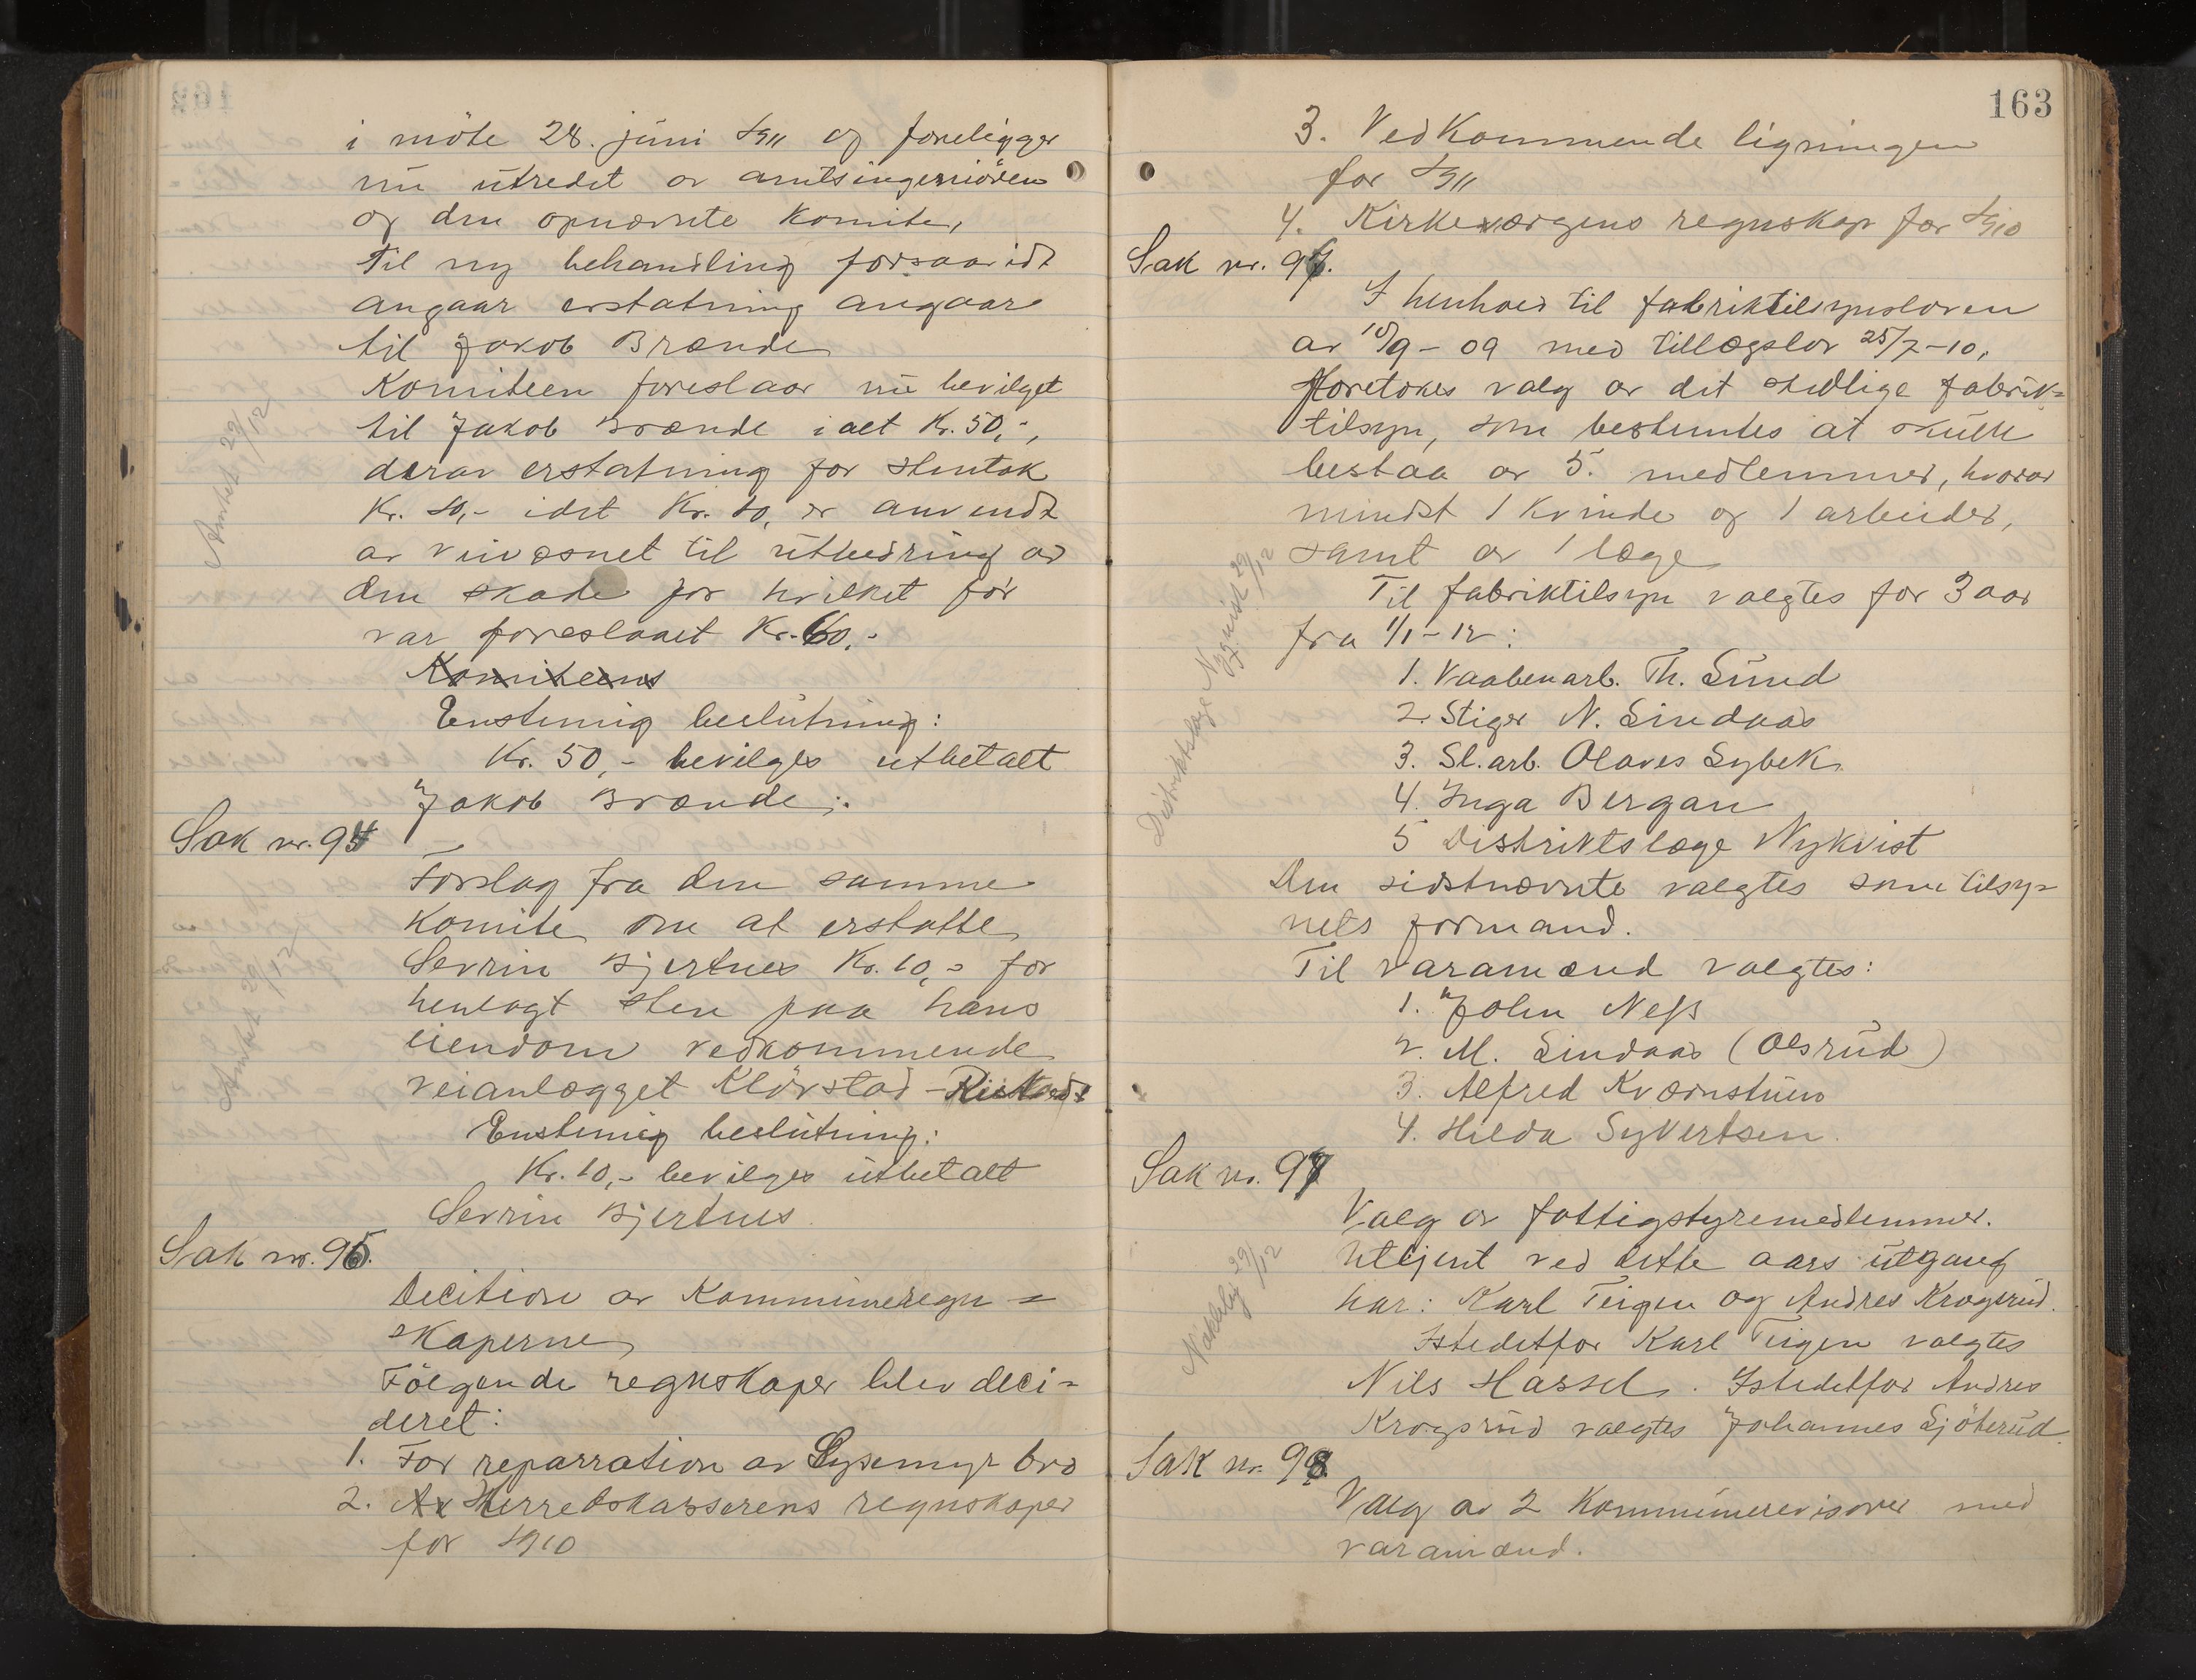 i möte 28. juni 1911 og foreligger
nu utredet av amtsingeniören
og den opnævnte komite,
til ny behandling forsaavidt
angaar erstatning angaar
til Jakob Brænde
Komiteen foreslaar nu bevilget
til Jakob Brænde i alt Kr. 50,-,
derav erstatning for stentak
Kr. 40,- idet Kr. 10, er anvendt
av veivæsnet til utbedring av
den skade for hvilket før
var foreslaaet Kr. 60,-
Komiteens
Enstemig beslutning:
Kr. 50,- bevilges utbetalt
Jakob Brænde.
Amtet 29/12
Sak nr. 94
Forslag fra den samme
komite om at erstatte
Sevrin Bjertnes Kr. 10,- for
henlagt sten paa hans
eiendom vedkommende
veianlægget Klövstad -
Enstemig beslutning:
Kr. 10,- bevilges utbetalt
Sevrin Bjertnes
Amtet 29/12
Sak nr. 95.
Decition av Kommuneregn=
skaperne
Fölgende regnskaper blev deci=
deret:
1. For reparration av Lysemyr bro
2. Av Herredskasserens regnskaper
for 1910
163
3. Vedkommende ligningen
for 1911
4. Kirkeværgens regnskap for 1910
Sak nr. 96.
I henhold til fabriktilsynsloven
av 10/9-09 med tillægslov 25/7-10,
foretokes valg av det stedlige fabrik=
tilsyn, som bestemtes at skulle
bestaa av 5. medlemmer, hvorav
mindst 1 kvinde og 1 arbeider,
samt av 1 læge
Til fabriktilsyn valgtes for 3 aar
fra 1/1-12:
1. Vaabenarb. Th. Lund
2. Stiger N. Lindaas
3. Sl.arb. Olaves Lybek
4. Inga Bergan
5 Distriktslæge Nykvist
Den sidstnævnte valgtes som tilsy=
nets formand.
Til varamænd valgtes:
1. John Ness
2. M. Lindaas (Olsrud)
3. Alfred Kværnstuen
4. Hilda Syvertsen.
Distriktslæge Nykvist 29/12
Sak nr. 97
Valg av fattigstyremedlemmer.
Uttjent ved dette aars utgang
har: Karl Teigen og Andres Krogsrud.
Istedetfor Karl Teigen valgtes
Nils Hassel. Istedetfor Andres
Krogsrud valgtes Johannes Sjöterud
29/12
Sak nr. 98
Valg av 2 Kommunerevisorer med
varamænd.